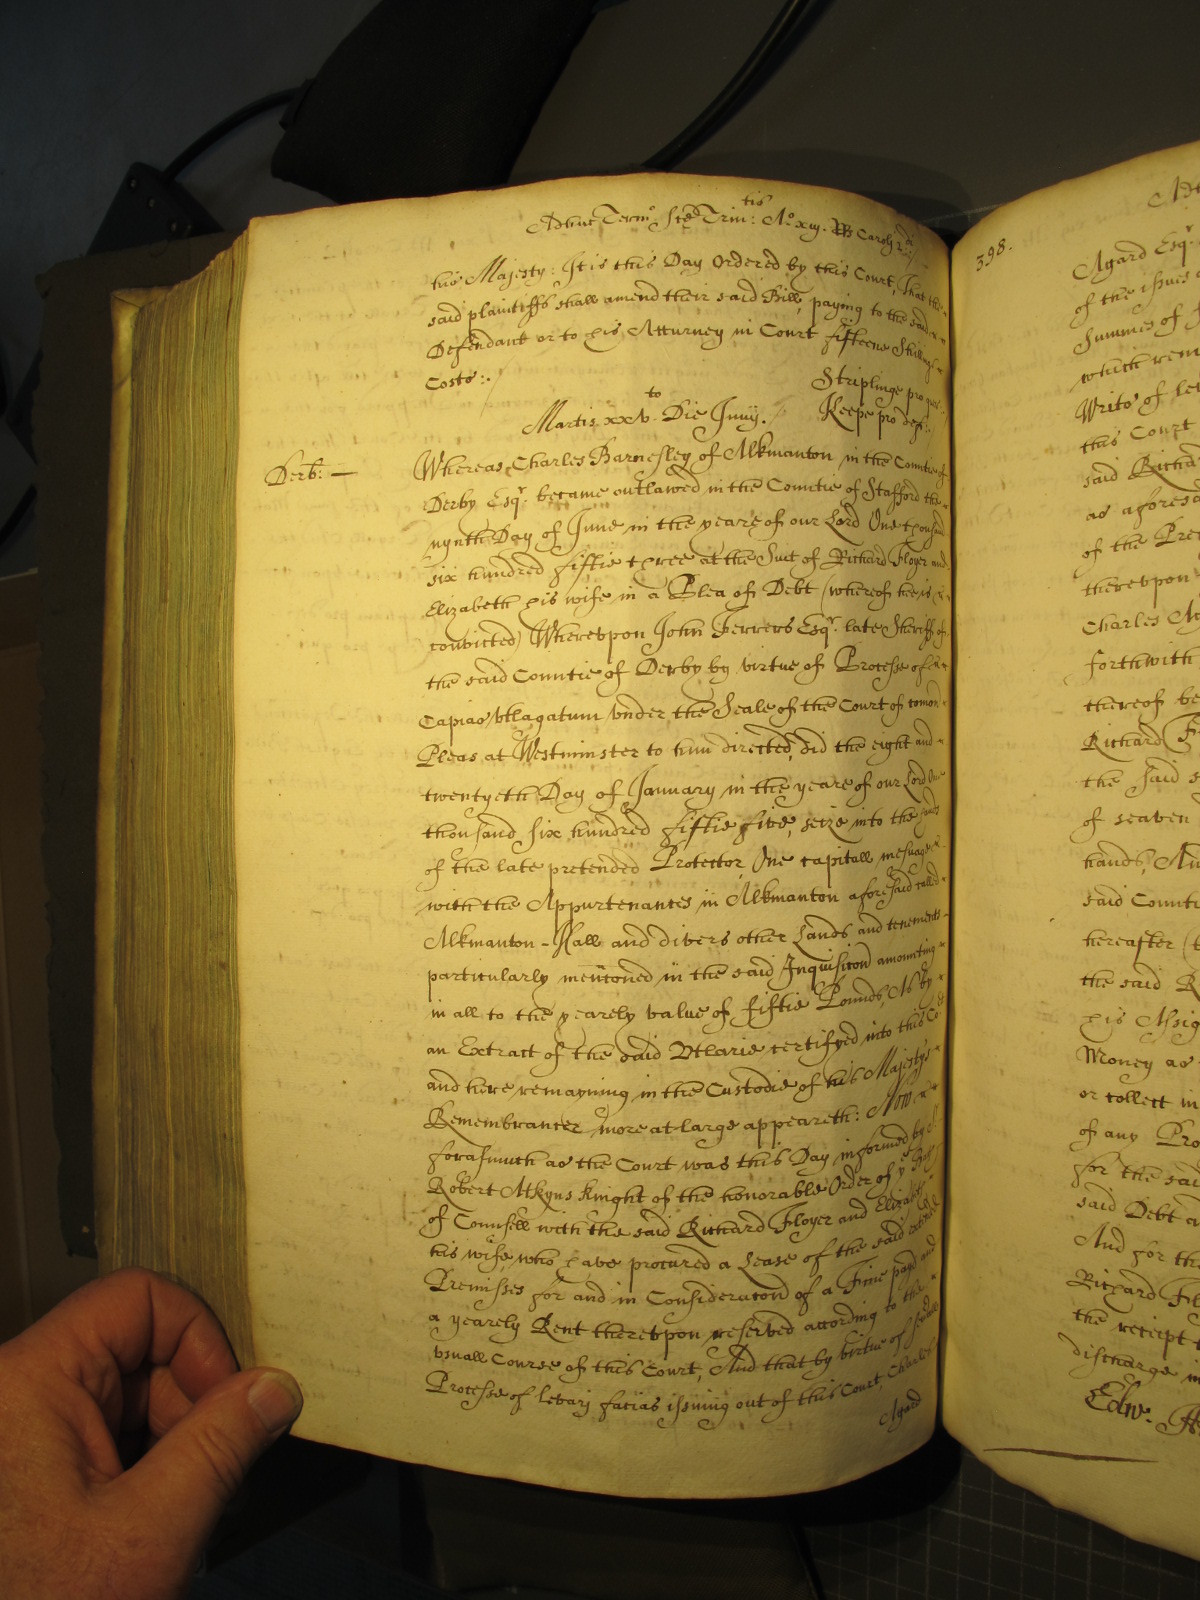 Adhuc Termo Ste Trin:tis Ao xiij. Rs Caroli 2di
his Majesty: It is this Day Ordered by this Court, That the
said plaintiffs shall amend their said Bill, paying to the said
Defendant or to his Atturney in Court fifteene Shillings
Costs:.
Striplinge pro quer:.
Martis xxvto. Die Junij. Keepe pro def:.
Derb: — Whereas Charles Barnesley of Alkmanton in the Countie of
Derby Esqr. became outlawed in the Countie of Stafford the
nynth Day of June in the yeare of our Lord One thousand
six hundred fiftie three at the Suit of Richard Floyer and
Elizabeth his wife in a Plea of Debt (whereof hee is
convicted) Wherevpon John Ferrers Esqr. late Sheriff of
the said Countie of Derby by virtue of Processe of
Capias vtlagatum vnder the Seale of the Court of comon
Pleas at Westminster to him directed, did the eight and
twentyeth Day of January in the yeare of our Lord One
thousand six hundred fiftie five, seize into the hands
of the late pretended Protector, One capitall mesuage
with the Appurtenances in Alkmanton aforesaid called
Alkmanton-Hall and divers other Lands and tenements
particularly menconed in the said Inquisicon amounting
in all to the yearely value of fiftie Pounds, As by
an Extract of the said Vtlarie certifyed into this Cot
and here remayning in the Custodie of his Majestys
Remembrancer more at large appeareth: Now
forasmuch as the Court was this Day informed by Sr
Robert Atkyns Knight of the honorable Order of ye Bath
of Counsell with the said Richard Floyer and Elizabeth
his wife, who have procured a Lease of the said extended
Premisses for and in Consideracon of a Fine payd and
a yearely Rent therevpon reserved according to the
vsuall Course of this Court, And that by virtue of severall
Processe of levari facias issuing out of this Court, Charles
Agard
398.
Agard Esqr.
of the issues
Summes of
which rem
Writs of le
this Court
said Richa
as aforesa
of the Pre
therevpon
Charles A
forthwith
thereof be
Richard F
the said
of seaven
hands, An
said Counti
hereafter
the said R
his Assig
Money as
or collect in
of any Pro
for the sai
said Debt a
And for th
Richard Fl
the receipt
discharge
Edw. A